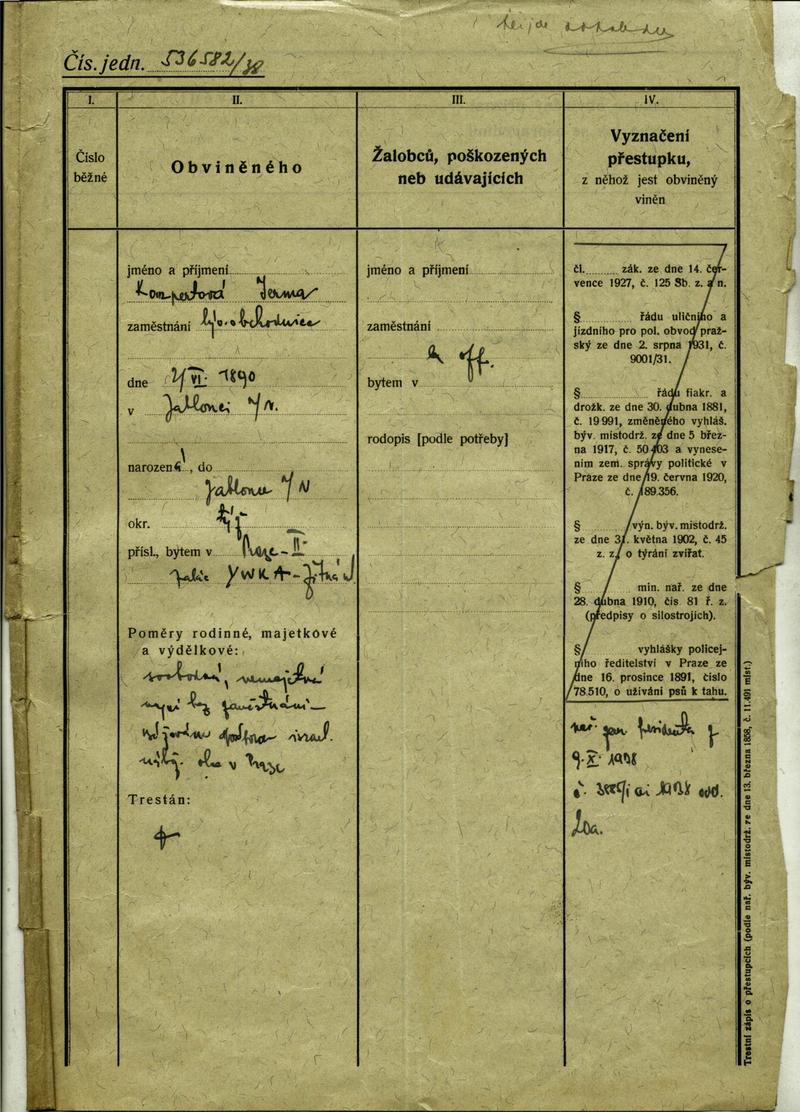 Čís. jedn. 536582/38
I.
II.
III.
IV.
Číslo
běžné
Obviněného
Žalobců, poškozených
neb udávajících
Vyznačení
přestupku,
z něhož jest obviněný
viněn
jméno a příjmení
Kompertová Irma
zaměstnání obchodnice
dne 2/VI. 1890
v Jablonci /N.
narozen, do
Jablonec /N
okr.
přísl., bytem v Praze-II
YWKA-Žitná
Poměry rodinné, majetkové
a výdělkové:
svobodná, nemajetná
nyní bez zaměstnání
izrael.
v Praze
Trestán:
jméno a příjmení
zaměstnání
off.
bytem v
rodopis [podle potřeby]
čl. zák. ze dne 14. čer-
vence 1927, č. 125 Sb. z. a n.
§ řádu uličního a
jízdního pro pol. obvod praž-
ský ze dne 2. srpna 1931, č.
9001/31.
§ řádu fiakr. a
drožk. ze dne 30. dubna 1881,
č. 19 991, změněného vyhláš.
býv. místodrž. ze dne 5 břez-
na 1917, č. 50403 a vynese-
ním zem. správy politické v
Praze ze dne 19. června 1920,
č. 189.356.
§ výn. býv. místodrž.
ze dne 31. května 1902, č. 45
z. z. o týrání zvířat.
§ min. nař. ze dne
28. dubna 1910, čís 81 ř. z.
(předpisy o silostrojích).
§ vyhlášky policej-
ního ředitelství v Praze ze
dne 16. prosince 1891, číslo
78.510, o užívání psů k tahu.
nař. pan presidenta z
9.X. 1938
1938 odd.
Trestní zápis o přestupcích (podle nař. býv. místodrž. ze dne 13. března 1858, č. 11.491 míst.)